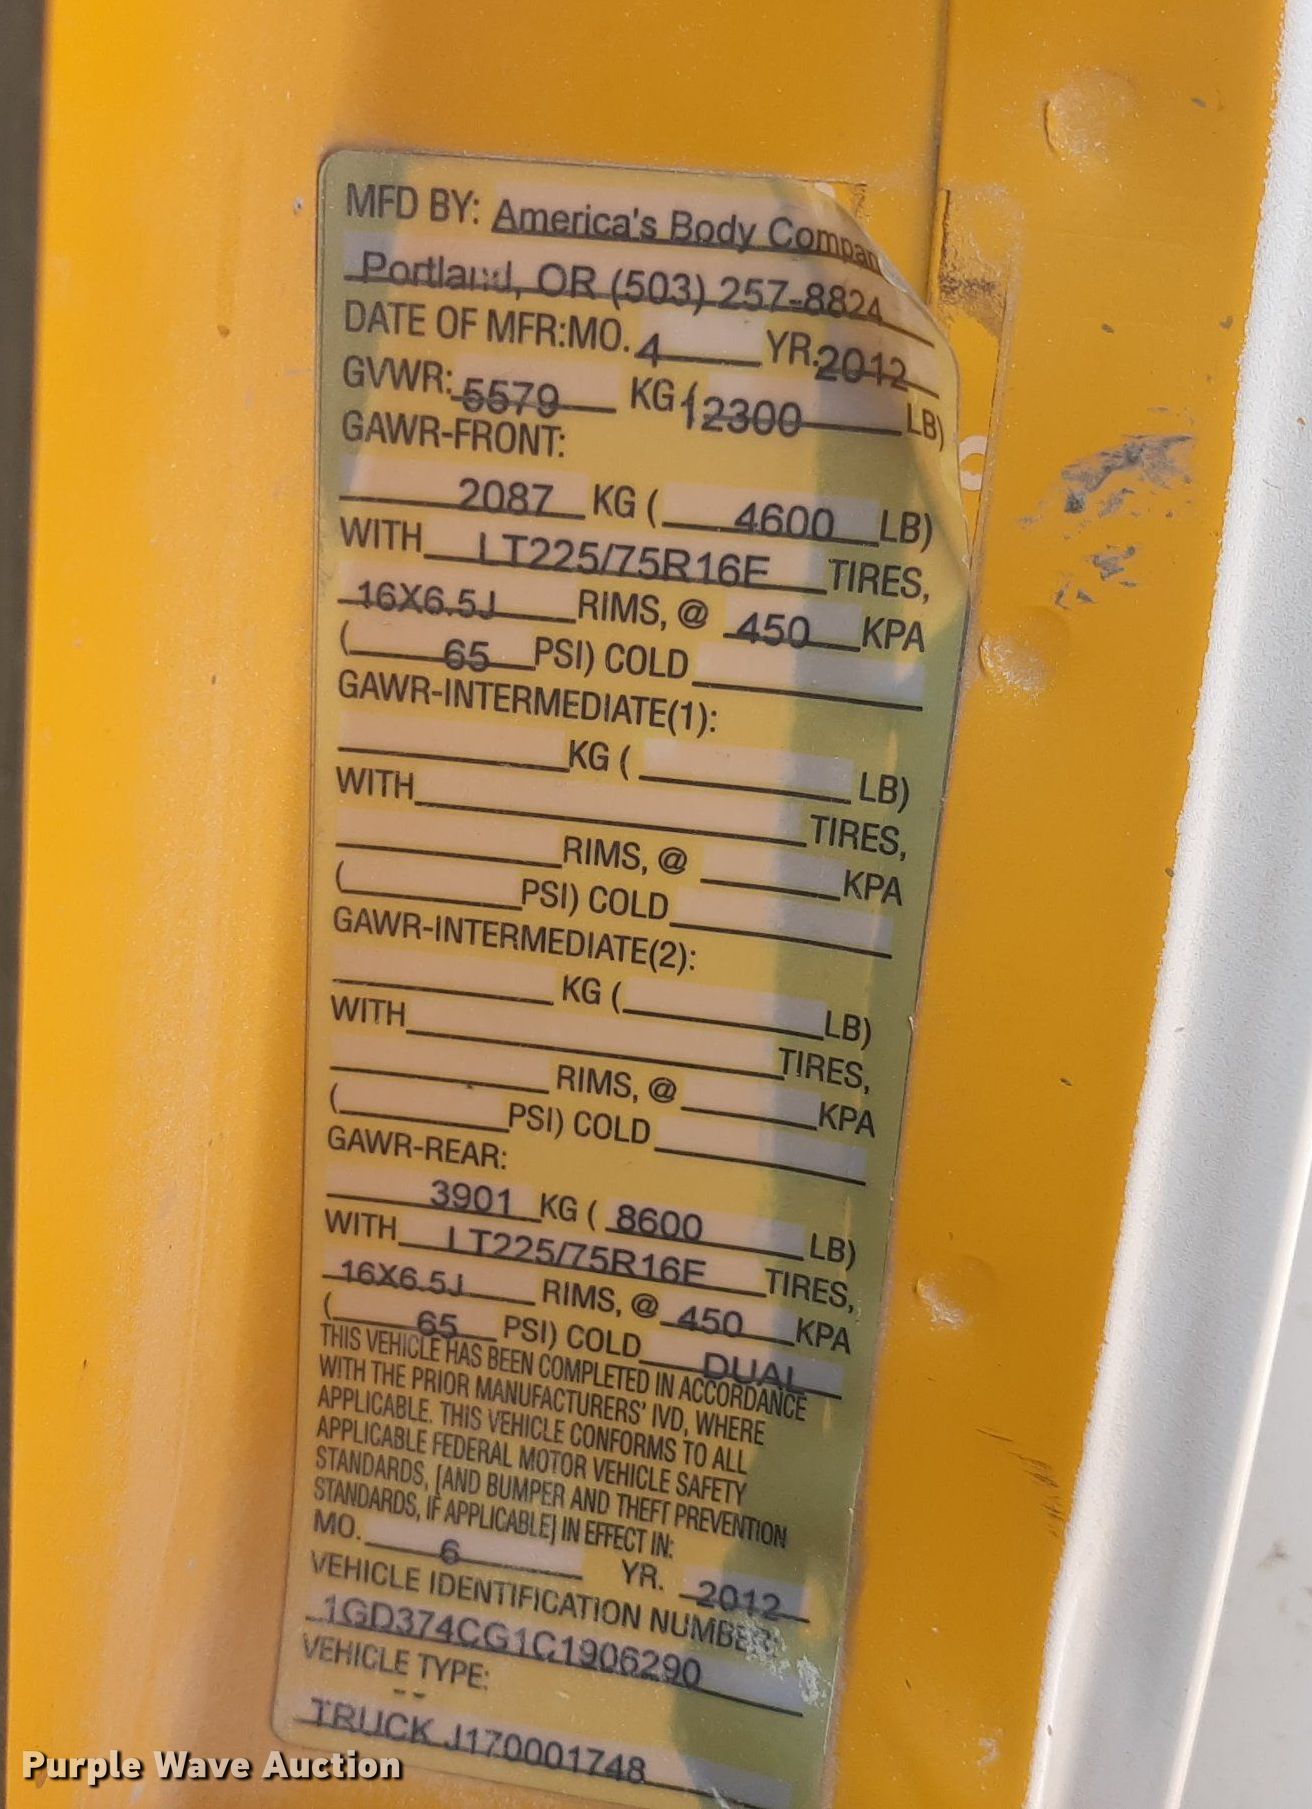 MFD BY: America's Body Compan
Portland, OR (503) 257-8824
DATE OF MFR:MO. 4 YR. 2012
GVWR: 5579 KG (12300 LB)
GAWR-FRONT:
2087 KG ( 4600 LB)
WITH LT225/75R16E TIRES,
16X6.5J RIMS, @ 450 KPA
( 65 PSI) COLD
GAWR-INTERMEDIATE(1):
KG ( LB)
WITH TIRES,
RIMS, @ KPA
( PSI) COLD
GAWR-INTERMEDIATE(2):
KG ( LB)
WITH TIRES,
RIMS, @ KPA
( PSI) COLD
GAWR-REAR:
3901 KG ( 8600 LB)
WITH LT225/75R16E TIRES,
16X6.5J RIMS, @ 450 KPA
( 65 PSI) COLD DUAL
THIS VEHICLE HAS BEEN COMPLETED IN ACCORDANCE
WITH THE PRIOR MANUFACTURERS' IVD, WHERE
APPLICABLE. THIS VEHICLE CONFORMS TO ALL
APPLICABLE FEDERAL MOTOR VEHICLE SAFETY
STANDARDS, [AND BUMPER AND THEFT PREVENTION
STANDARDS, IF APPLICABLE] IN EFFECT IN:
MO. 6 YR. 2012
VEHICLE IDENTIFICATION NUMBER:
1GD374CG1C1906290
VEHICLE TYPE:
TRUCK J170001748
Purple Wave Auction